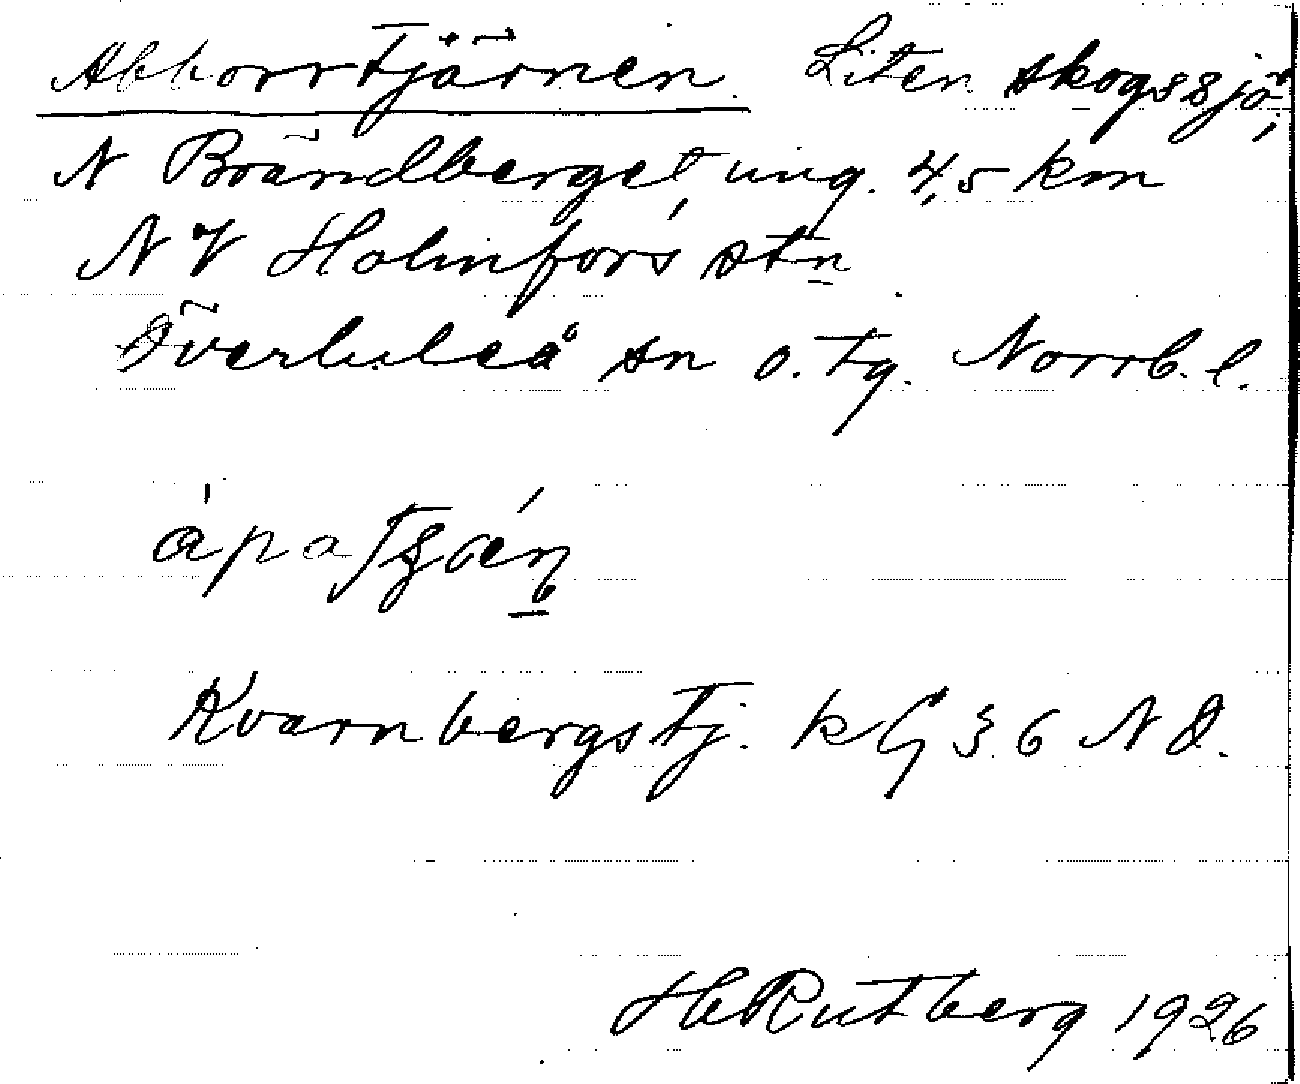 Abborrtjärnen. Liten skogssjö,
N Brändberget, ung. 4,5 km
NV Holmfors stn
Överluleå sn o. tg. Norrb. l.
Kvarnbergstj. kG 36 NO.
H Rutberg 1926